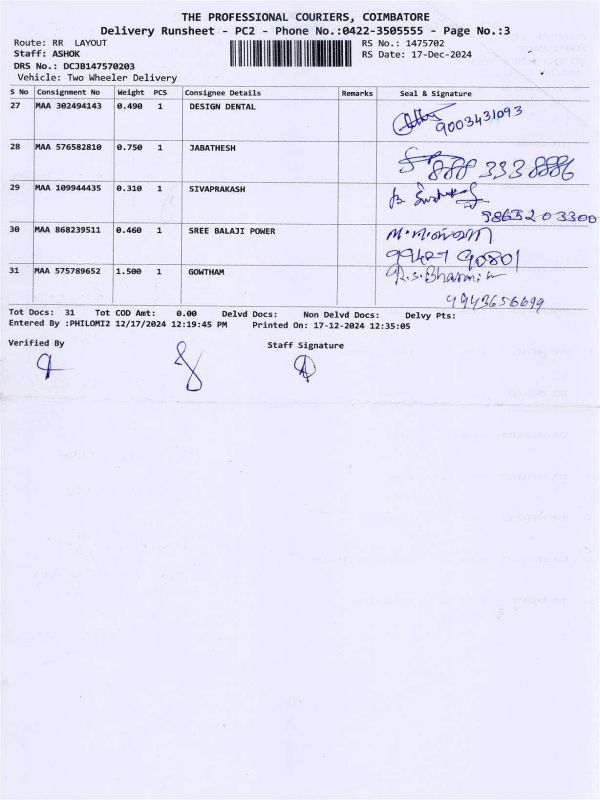 THE PROFESSIONAL COURIERS, COIMBATORE
Delivery Runsheet - PC2 - Phone No.:0422-3505555 - Page No.:3
Route: RR LAYOUT RS No.: 1475702
Staff: ASHOK RS Date: 17-Dec-2024
DRS No.: DCJB147570203
Vehicle: Two Wheeler Delivery
S No Consignment No Weight PCS Consignee Details Remarks Seal & Signature
27 MAA 302494143 0.490 1 DESIGN DENTAL
9003431093
28 MAA 576582810 0.750 1 JABATHESH
888 333 8886
29 MAA 109944435 0.310 1 SIVAPRAKASH
98652 03300
30 MAA 868239511 0.460 1 SREE BALAJI POWER
99427 90801
31 MAA 575789652 1.500 1 GOWTHAM
9943656699
Tot Docs: 31 Tot COD Amt: 0.00 Delvd Docs: Non Delvd Docs: Delvy Pts:
Entered By :PHILOMI2 12/17/2024 12:19:45 PM Printed On: 17-12-2024 12:35:05
Verified By Staff Signature